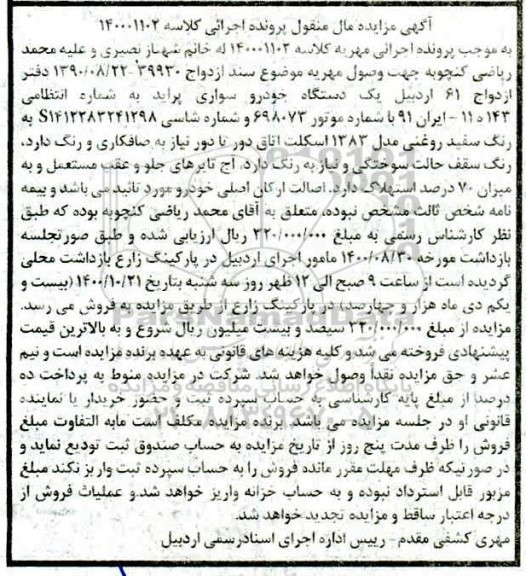 آگهی مزایده مال منقول پرونده اجرائی کلاسه ۱۴۰۰۰۱۱۰۲
به موجب پرونده اجرائی مهریه کلاسه ۱۴۰۰۰۱۱۰۲ له خانم شهناز نصیری و علیه محمد
ریاضی کنچوبه جهت وصول مهریه موضوع سند ازدواج ۳۹۹۳۰-۱۳۹۰/۰۸/۲۲ دفتر
ازدواج ۶۱ اردبیل یک دستگاه خودرو سواری پراید به شماره انتظامی
۱۴۳ ه ۱۱ - ایران ۹۱ با شماره موتور ۶۹۸۰۷۳ و شماره شاسی S۱۴۱۲۳۸۳۲۴۱۲۹۸ به
رنگ سفید روغنی مدل ۱۳۸۳ اسکلت اتاق دور تا دور نیاز به صافکاری و رنگ دارد،
رنگ سقف حالت سوختگی و نیاز به رنگ دارد. آج تایرهای جلو و عقب مستعمل و به
میزان ۷۰ درصد استهلاک دارد. اصالت ارکان اصلی خودرو مورد تائید می باشد و بیمه
نامه شخص ثالث مشخص نبوده، متعلق به آقای محمد ریاضی کنچوبه بوده که طبق
نظر کارشناس رسمی به مبلغ ۳۲۰/۰۰۰/۰۰۰ ریال ارزیابی شده و طبق صورتجلسه
بازداشت مورخه ۱۴۰۰/۰۸/۳۰ مامور اجرای اردبیل در پارکینگ زارع بازداشت محلی
گردیده است از ساعت ۹ صبح الی ۱۲ ظهر روز سه شنبه بتاریخ ۱۴۰۰/۱۰/۲۱ (بیست و
یکم دی ماه هزار و چهارصد) در پارکینگ زارع از طریق مزایده به فروش می رسد.
مزایده از مبلغ ۳۲۰/۰۰۰/۰۰۰ سیصد و بیست میلیون ریال شروع و به بالاترین قیمت
پیشنهادی فروخته می شد و کلیه هزینه های قانونی به عهده برنده مزایده است و نیم
عشر و حق مزایده نقداً وصول خواهد شد. شرکت در مزایده منوط به پرداخت ده
درصد از مبلغ پایه کارشناسی به حساب سپرده ثبت و حضور خریدار یا نماینده
قانونی او در جلسه مزایده می باشد. برنده مزایده مکلف است مابه التفاوت مبلغ
فروش را ظرف مدت پنج روز از تاریخ مزایده به حساب صندوق ثبت تودیع نماید و
در صورتیکه ظرف مهلت مقرر مانده فروش را به حساب سپرده ثبت واریز نکند مبلغ
مزبور قابل استرداد نبوده و به حساب خزانه واریز خواهد شد.و عملیات فروش از
درجه اعتبار ساقط و مزایده تجدید خواهد شد.
مهری کشفی مقدم - رییس اداره اجرای اسنادرسمی اردبیل